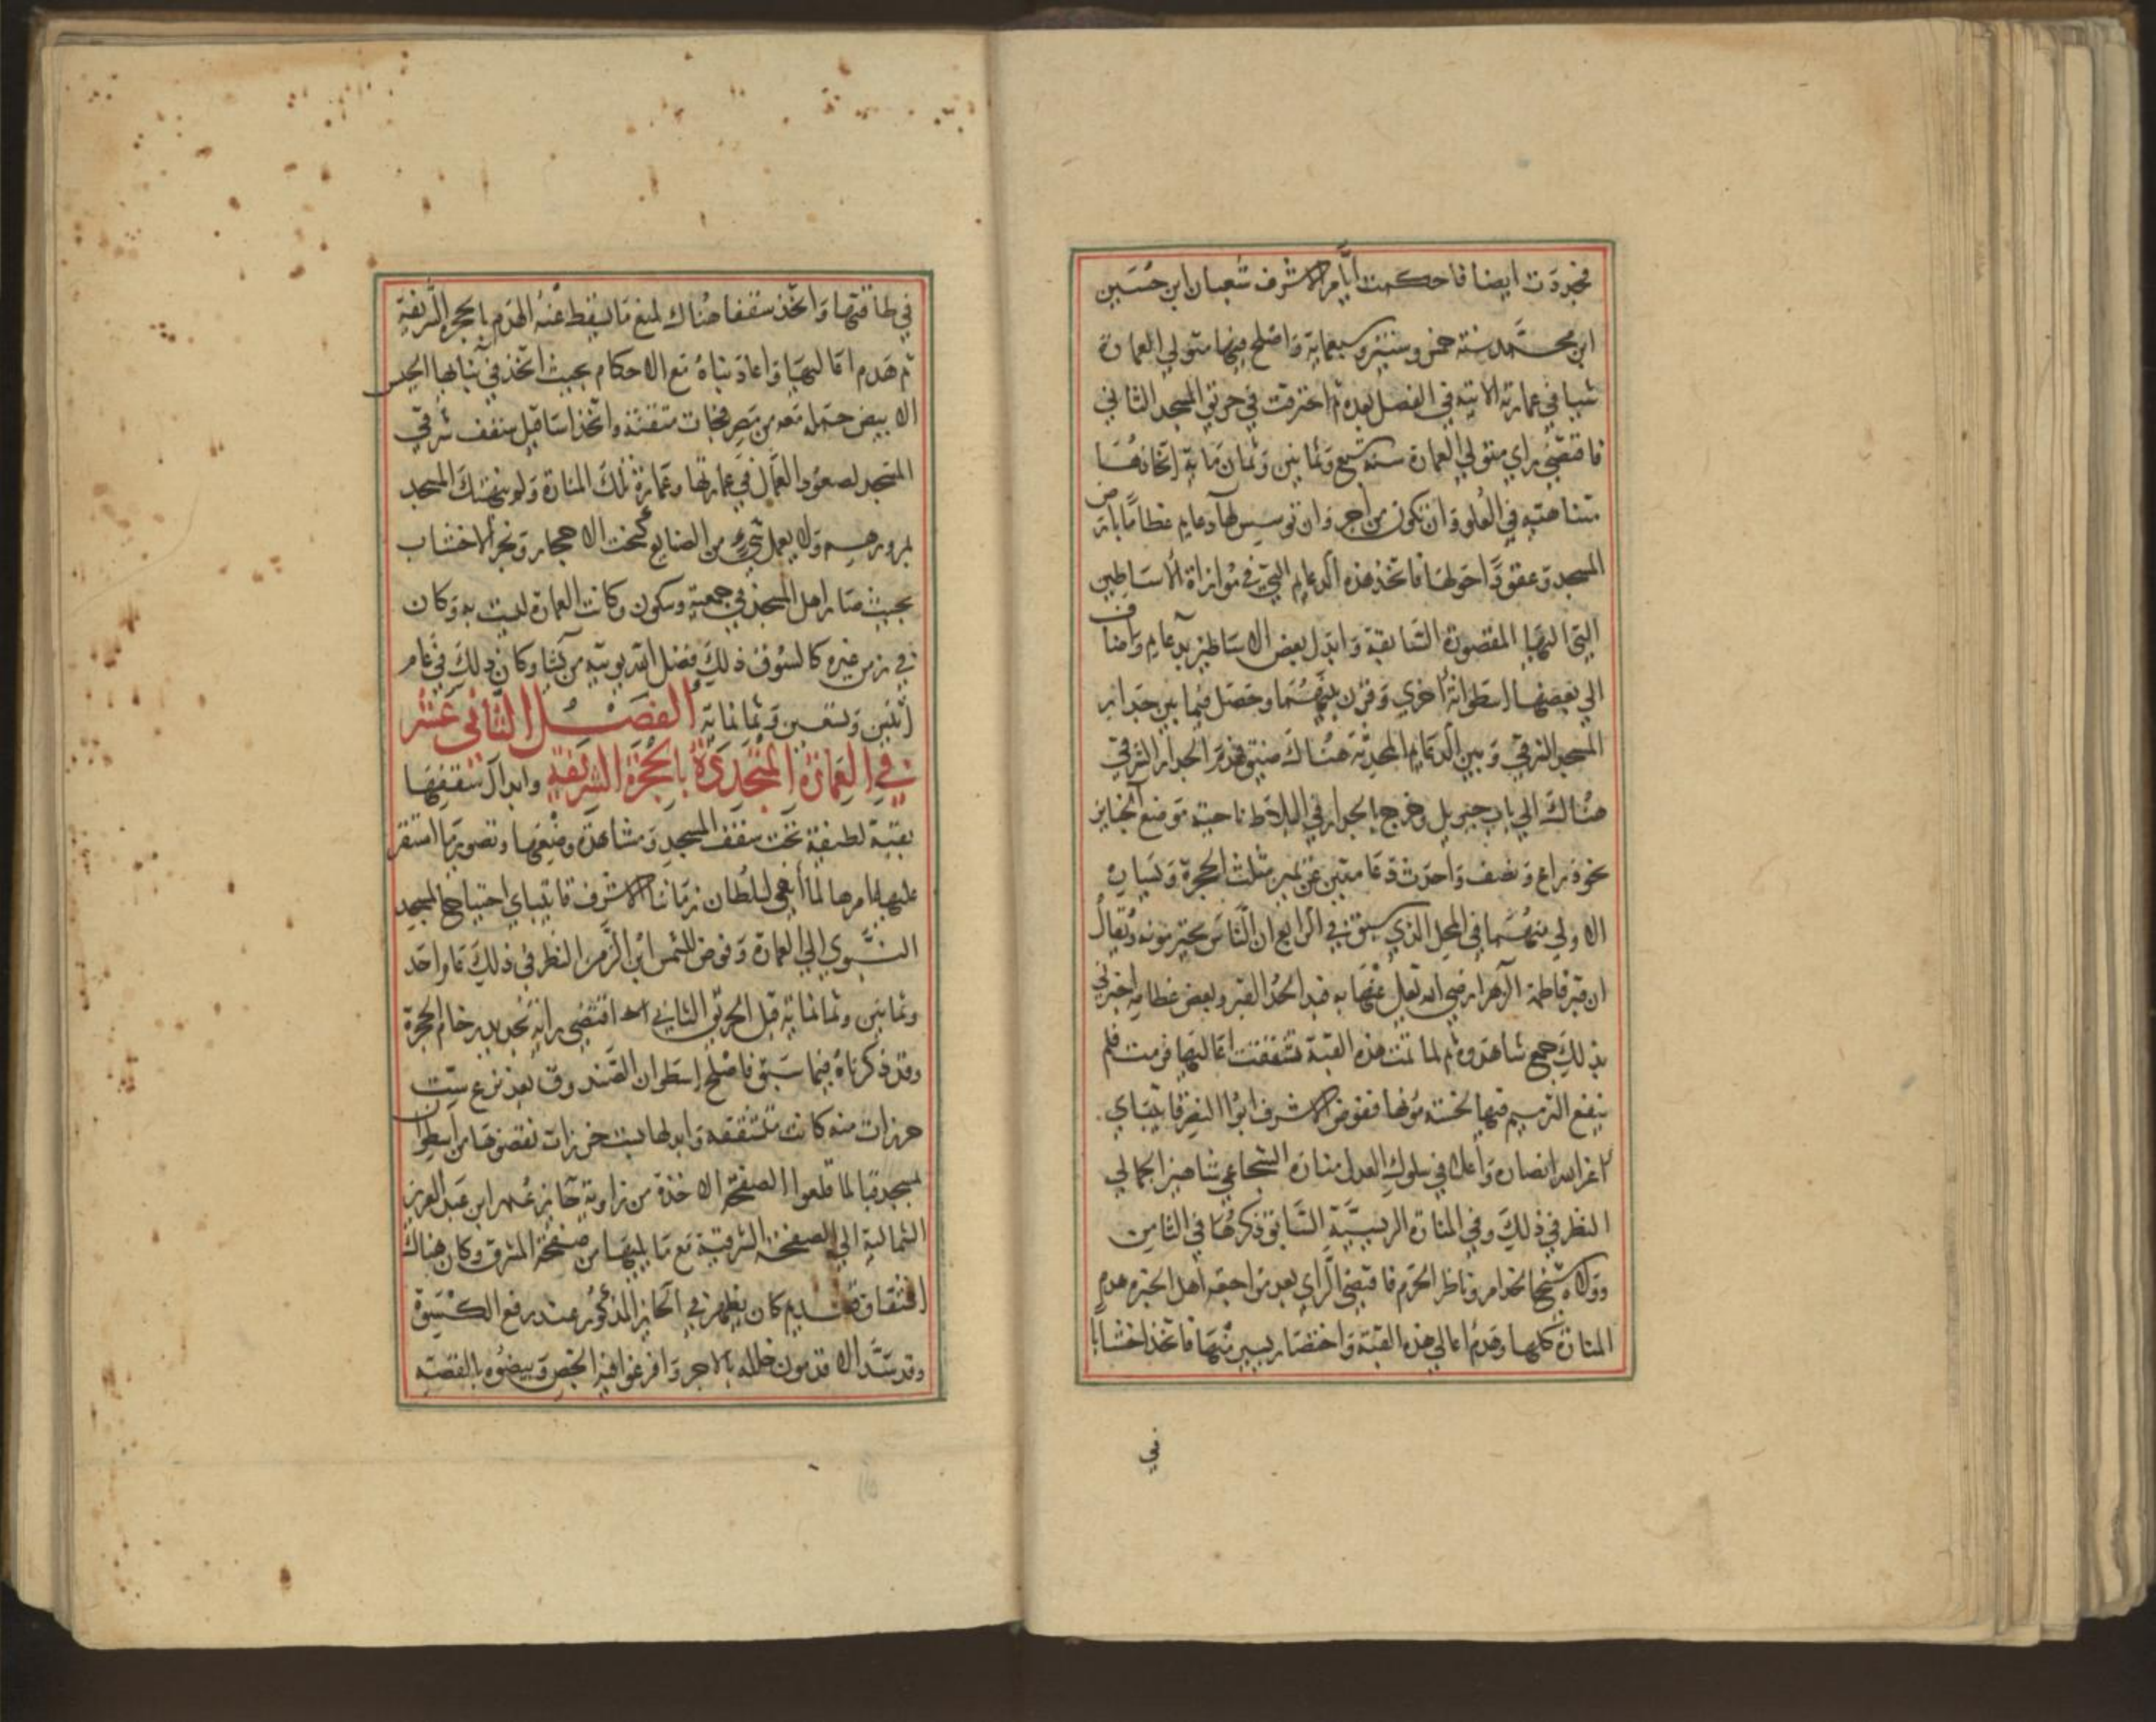 فجردت ايضا فاحكمت ايام الاشرف شعبان ابن حسين
ابن محمد سنة خمس وستين وسبعماية واصلح فيها متولي العمارة
شيا في عمارته الاتية في الفصل بعده ثم احترقت في حريق المسجد الثاني
فاقتضى راي متولي العمارة سنة سبع وثمانين وثمان ماية اتخاذها
متناهية في العلو وان تكون من آجر وان توسيس لها دعايم عظاما بارض
المسجد وعقودا حولها فاتخذ هذه الدعايم التي في موازاة الاساطين
التي اليها المقصورة السابقة وابدل بعض الاساطين بدعايم واضاف
الي بعضها اسطوانة اخري وقرن بينهما وحصل فيما بين جدار
المسجد الشرقي وبين الدعايم المحدثة هناك ضيق فهدم الجدار الشرقي
هناك الي باب جبريل وخرج بالجدار في البلاط ناحية موضع الجنايز
نحو ذراع ونصف واحدث دعامتين عن يمين مثلث الحجرة ويساره
الاولي منهما في المحل الذي سبق في الرابع ان الناس يحترمونه ويقال
ان قبر فاطمة الزهرا رضي الله تعالى عنها به فبدا لحد القبر وبعض عظامه اخبرني
بذلك جمع شاهدوه ثم لما تمت هذه القبة تشققت اعاليها فرمت فلم
ينفع الترميم فيها لخسة مؤنها ففوض الاشرف ابوا النصر قايتباي
اعز الله انصاره واعلا في سلوك العدل مناره الشجاعي شاهين الجمالي
النظر في ذلك وفي المنارة الرييسية السابق ذكرها في الثامن
وولاه شيخا لخدام وناظر الحرم فاقتضى الراي بعد مراجعة اهل الخبرة هدم
المنارة كلها وهدم اعالي هذه القبة واختصار يسير منها فاتخذ اخشابا
في
في طاقتها واتخذ سقفا هناك لمنع ما يسقط عند الهدم بالحجرة الشريفة
ثم هدم اعاليها واعاد بناه مع الاحكام بحيث اتخذ في بنايها الجبس
الابيض حمله معه من مصر فجات متقنة واتخذ اساقيل سقف شرقي
المسجد لصعود العمال في عمارتها وعمارة تلك المنارة ولم ينهتك المسجد
بمرورهم ولا بعمل شيء من الصنايع كنحت الاحجار ونجر الاخشاب
بحيث صار اهل المسجد في جمعية وسكون وكانت العمارة ليست به وكان
في زمن غيره كالسوق ذلك فضل الله يوتيه من يشا وكان ذلك في عام
اثنين وتسعين وثمانماية الفصل الثاني عشر
في العمارة المتجددة بالحجرة الشريفة وابدال سقفها
بقبة لطيفة تحت سقف المسجد ومشاهدة وضعها وتصوير ما استقر
عليها امرها لما أنهي لسلطان زماننا الاشرف قايتباي احتياج المسجد
النبوي الي العمارة وفوض للشمس ابن الزمن النظر في ذلك عام احد
وثمانين وثمانماية قبل الحريق الثاني اقتضى رايه تجديد رخام الحجرة
وقد ذكرناه فيما سبق فاصلح اسطوان الصندوق بعد نزع ست
خرزات منه كانت متشققة وابدلها بست خرزات نقضوها من اسطوان
بمسجد قبا لما قلعوا الصفحة الاخذة من زاوية حايز عمر ابن عبد العزيز
الشمالية الي الصفحة الشرقية مع ما يليها من صفحة المشرق وكان هناك
انشقاق قديم كان يظهر في الحايز المذكور عند رفع الكسوة
وقد سد الاقدمون خلله بالاجر وافرغوا فيه الجص وبيضوه بالقصة